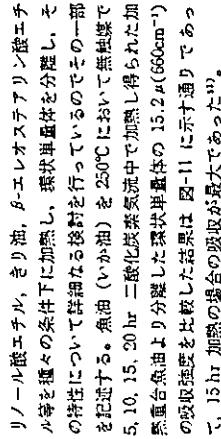 リノール酸エチル，きり油，β-エレオステアリン酸エチ
ル等を種々の条件下に加熱し，環状単量体を分離し，そ
の特性について詳細なる検討を行っているのでその一部
を記述する。魚油（いか油）を 250℃ において無触媒で
5, 10, 15, 20 hr 二酸化炭素気流中で加熱し得られた加
熱重合魚油より分離した環状単量体の 15.2 μ(660cm⁻¹)
の吸収強度を比較した結果は 図-11 に示す通り であっ
て，15 hr 加熱の場合の吸収が最大であった¹³⁾。